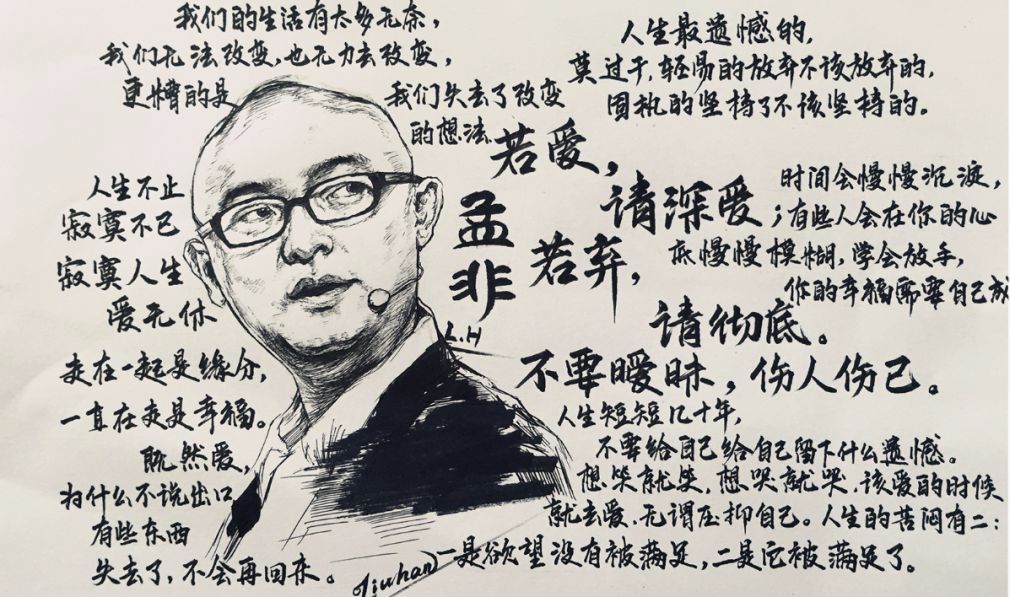 我们的生活有太多无奈，
我们无法改变，也无力去改变，
更糟的是
我们失去了改变
的想法
人生最遗憾的，
莫过于，轻易的放弃不该放弃的，
固执的坚持了不该坚持的。
人生不止
寂寞不已
寂寞人生
爱无休
走在一起是缘分，
一直在走是幸福。
既然爱，
为什么不说出口
有些东西
失去了，不会再回来。
孟非
L.H
若爱，
请深爱
若弃，
请彻底。
不要暧昧，伤人伤己。
时间会慢慢沉淀，
；有些人会在你的心
底慢慢模糊，学会放手，
你的幸福需要自己成
人生短短几十年，
不要给自己给自己留下什么遗憾。
想笑就笑，想哭就哭，该爱的时候
就去爱，无谓压抑自己。人生的苦闷有二：
一是欲望没有被满足，二是它被满足了。